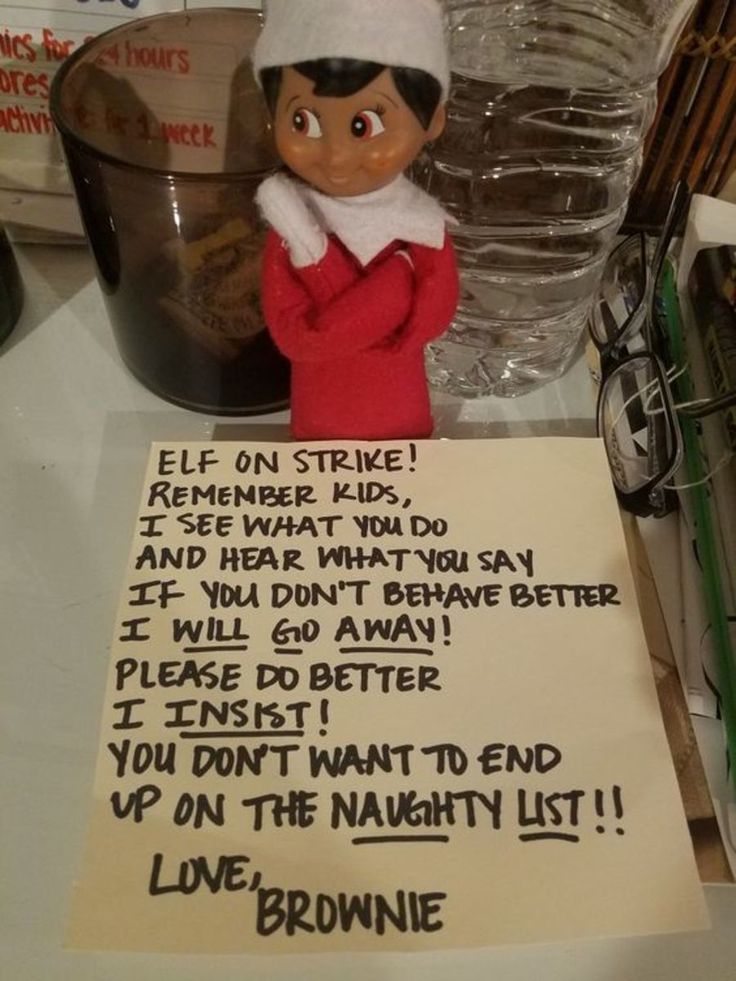 hours
week
ELF ON STRIKE!
REMEMBER KIDS,
I SEE WHAT YOU DO
AND HEAR WHAT YOU SAY
IF YOU DON'T BEHAVE BETTER
I WILL GO AWAY!
PLEASE DO BETTER
I INSIST!
YOU DON'T WANT TO END
UP ON THE NAUGHTY LIST!!
LOVE,
BROWNIE